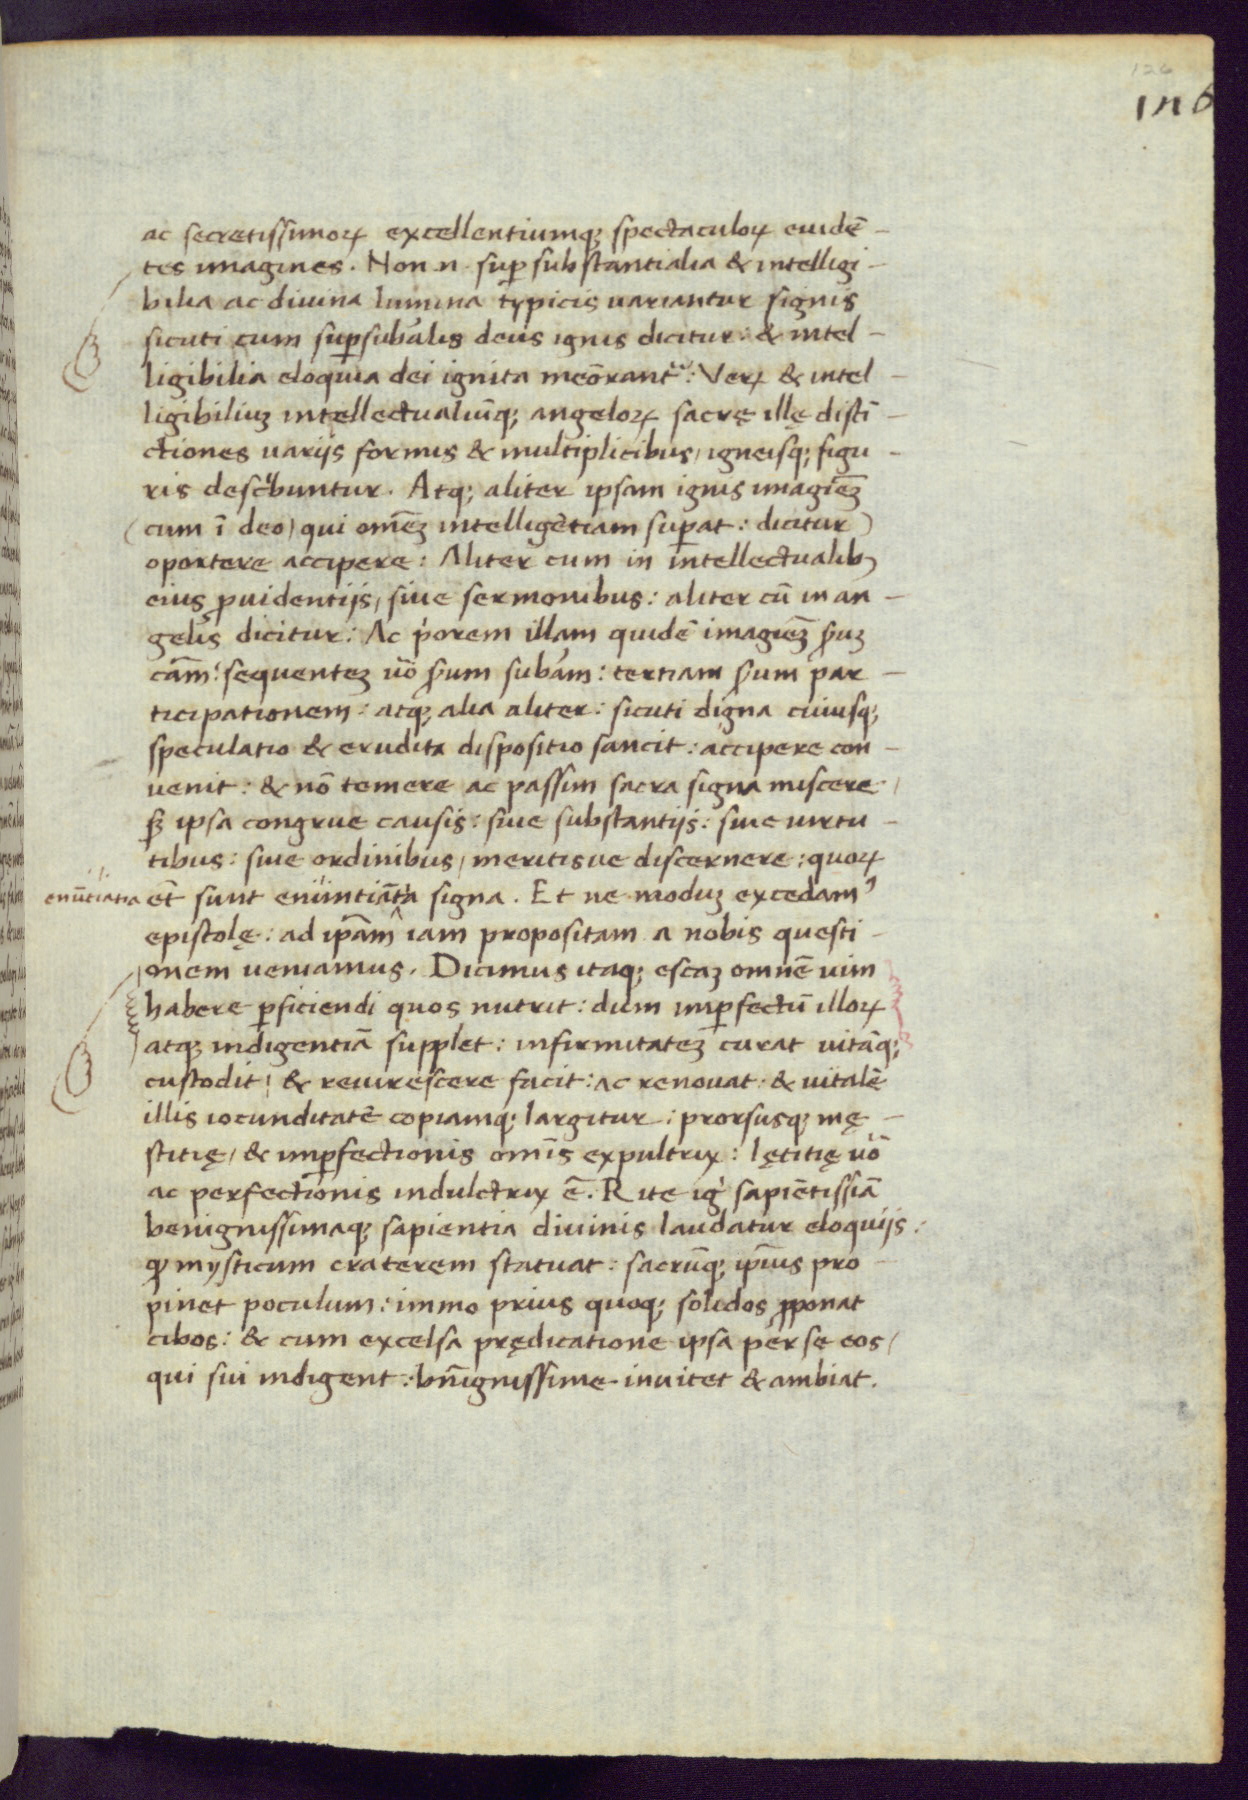 126
126
ac secretissimoꝝ excellentiumqꝫ spectaculoꝝ euidē-
tes imagines. Non .n. suꝑsubstantialia & intelligi-
bilia ac diuina lumina typicis uariantur signis
sicuti cum suꝑsub̄alis deus ignis dicitur: & intel-
ligibilia eloquia dei ignita meōrant᷑: Veꝝ & intel-
ligibiliuꝫ intellectualiūqꝫ angeloꝝ sacrę illę distī-
ctiones uarijs formis & multiplicibus/ igneisqꝫ figu-
ris descͥbuntur. Atqꝫ aliter ipsam ignis imagiēꝫ
(cum ī deo/ qui om̄eꝫ intelligētiam suꝑat: dicitur)
oportere accipere: Aliter cum in intellectualibꝫ
eius ꝓuidentijs/ siue sermonibus: aliter cū in an-
gelis dicitur: Ac pͥorem illam quidē imagiēꝫ ẜm
cām: sequenteꝫ uō ẜum sub̄am: tertiam ẜum par-
ticipationem: atqꝫ alia aliter: sicuti digna cuiusqꝫ
speculatio & erudita dispositio sancit: accipere con-
uenit: & nō temere ac passim sacra signa miscere/
sꝫ ipsa congrue causis: siue substantijs: siue uirtu-
tibus: siue ordinibus/ meritisue discernere: quoꝝ
enūtiatia
et̄ sunt enuntiāta signa. Et ne moduꝫ excedamꝰ
epistolę: ad ip̄am iam propositam a nobis questi-
onem ueniamus. Dicimus itaqꝫ escaꝫ omnē uim
habere ꝑficiendi quos nutrit: dum imꝑfectū illoꝝ
atqꝫ indigentiā supplet: infirmitateꝫ curat uitāqꝫ
custodit/ & reuirescere facit: ac renouat: & uitalē
illis iocunditatē copiamqꝫ largitur: prorsusqꝫ mę-
stitię/ & imꝑfectionis om̄is expultrix: lętitię uō
ac perfectionis indultrix ē. Rite igͥ sapiētissīa
benignissimaqꝫ sapientia diuinis laudatur eloquijs:
ꝙ mysticum craterem statuat: sacrūqꝫ ip̄ius pro-
pinet poculum: immo prius quoqꝫ solidos ꝓponat
cibos: & cum excelsa prędicatione ipsa per se eos/
qui sui indigent: bn̄ignissime inuitet & ambiat.